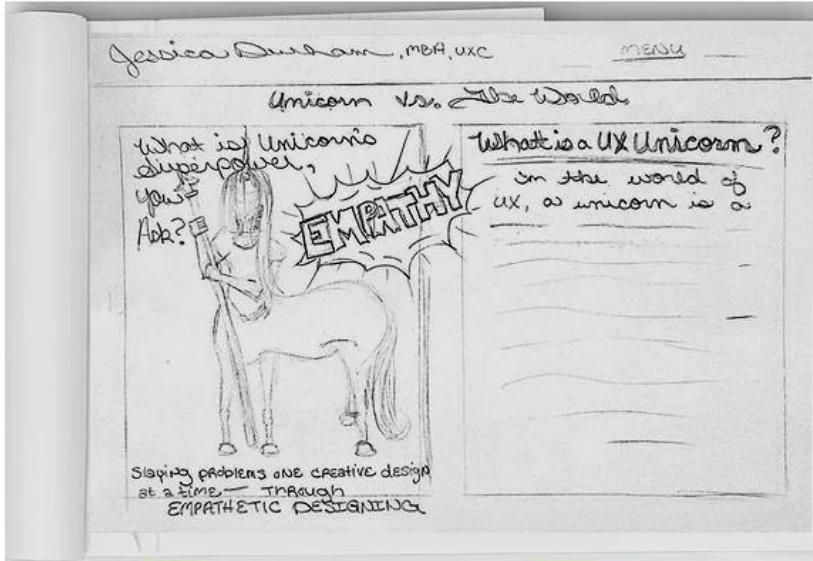 Jessica Durham, MBA, UXC
MENU
Unicorn vs. The World
What is Unicorn's
Superpower,
you
Ask?
EMPATHY
Slaying problems one creative design
at a time — Through
EMPATHETIC DESIGNING
What is a UX Unicorn?
in the world of
UX, a unicorn is a